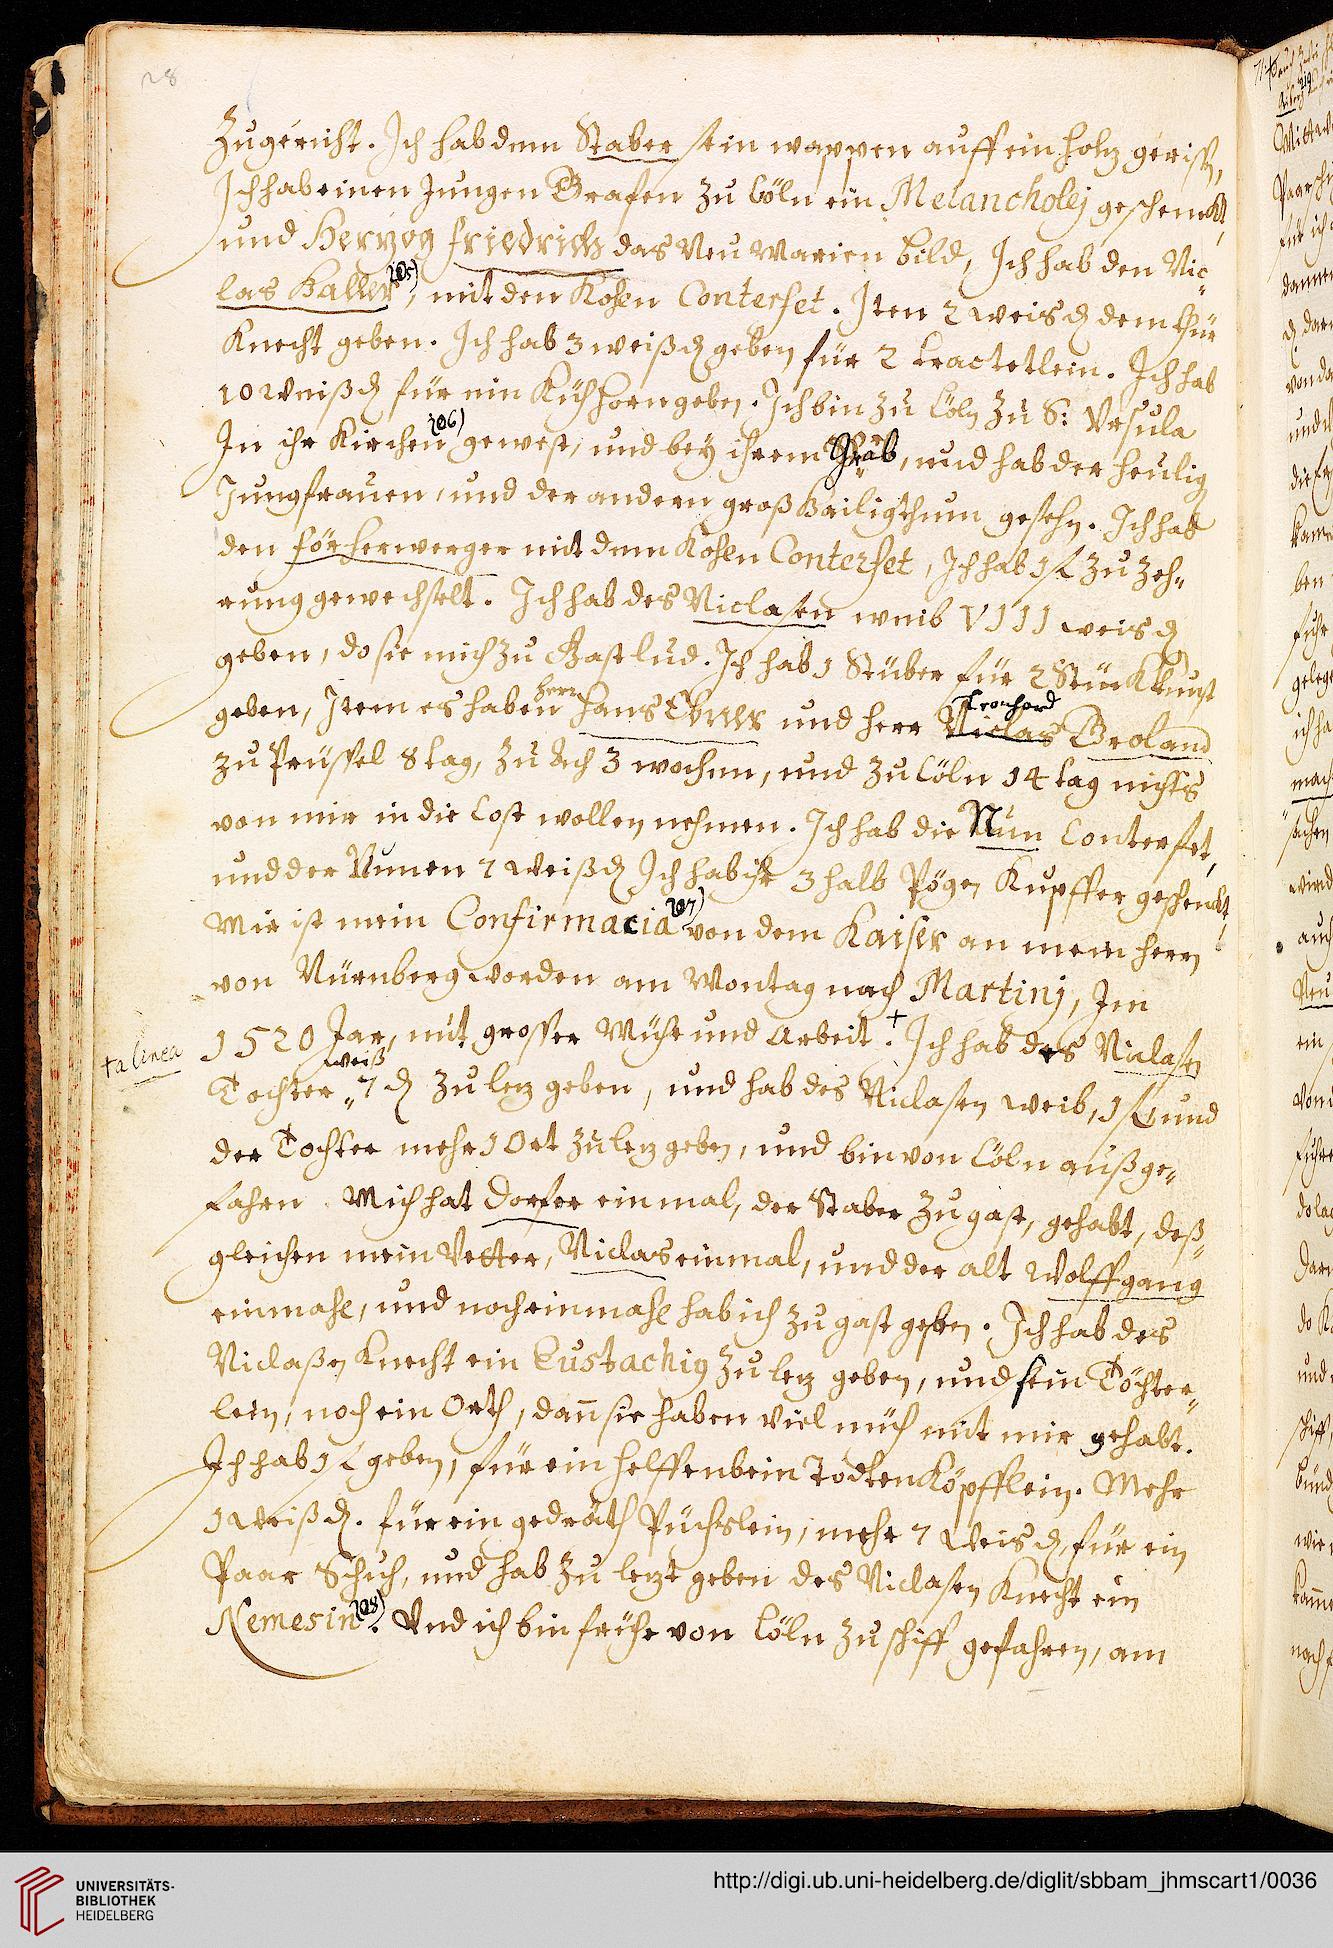 28
Zugericht. Ich hab dem Staber sein wappen auff ein holz geriss,
Ich hab einen Jungen Grafen zu Cöln ein Melancholej geschenckt,
und Herzog friedrich das Neu Marien bild, Ich hab den Nic=
las Haller 105), mit den Kohen Conterfet. Iten 2 weis ₰ dem Thür
Knecht geben. Ich hab 3 weiß ₰ geben für 2 tractetlein. Ich hab
10 weiß ₰ für ein Kühhorn geben. Ich bin zu Cöln zu S: Ursula
In ihr Kirchen 106) gewest, und bey ihrem Grab, und hab der heilig
Jungfrauen, und der andern groß Heiligthum gesehn. Ich hab
den förherwerger mit dem Kohen Conterfet, Ich hab 1 fl zu zeh=
rung gewechselt. Ich hab des Niclasen weib VIII weis ₰
geben, do sie mich zu Gast lud. Ich hab 1 Stüber für 2 Stück kunst
geben, Item es haben herr Hans Ebner und herr Niclas Leonhard Groland
zu Prüssel 8 tag, zu Ach 3 wochen, und zu Cöln 14 tag nichts
von mir in die Cost wollen nehmen. Ich hab die Nun Conterfet,
und der Nunen 7 weiß ₰ Ich hab ihr 3 halb Pögen Kupffer geschenckt,
Mir ist mein Confirmacia 107) von dem Kaiser an mein herrn
von Nürnberg worden am Montag nach Martinj, Im
1520 Jar, mit grosser Mühe und Arbeit. + Ich hab des Niclasen
+ a linea
Tochter 7 weiß ₰ zu letz geben, und hab des Niclasen weib, 1 fl und
der Tochter mehr 1 Ort zu letz geben, und bin von Cöln außge=
fahren. Mich hat Dorfer einmal, der Staber zu gast, gehabt, deß=
gleichen mein Vetter, Niclas einmal, und der alt Wolffgang
einmahl, und noch einmahl hab ich zu gast geben. Ich hab des
Niclaßen Knecht ein Eustachig zu letz geben, und sein Töchter=
lein, noch ein Orth, dann sie haben viel müh mit mir gehabt.
Ich hab 1 fl geben, für ein helffenbein Todtenköpfflein. Mehr
1 weiß ₰. für ein gedräth Püchslein, mehr 7 weis ₰, für ein
Paar Schuh, und hab zu lezt geben des Niclasen Knecht ein
Nemesin 108). Und ich bin frühe von Cöln zu schiff gefahren, am
UNIVERSITÄTS-
BIBLIOTHEK
HEIDELBERG
http://digi.ub.uni-heidelberg.de/diglit/sbbam_jhmscart1/0036